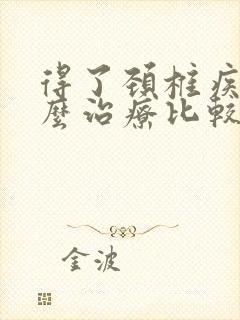 得了颈椎疾
麽治療比較
金波